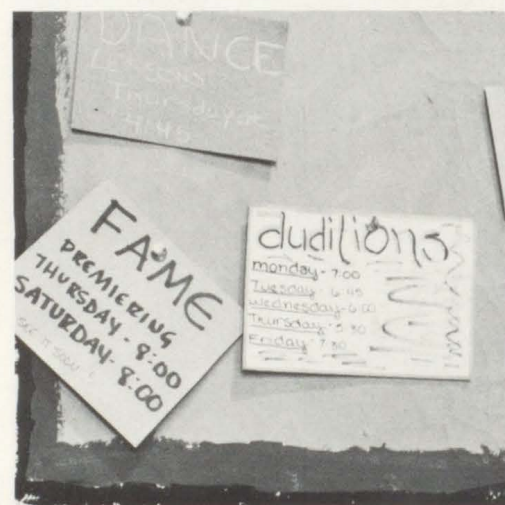 DANCE
LESSONS
Thursday at
4:45
FAME
PREMIERING
THURSDAY - 8:00
SATURDAY - 8:00
SEE IT SOON!
auditions
monday - 7:00
Tuesday - 6:45
Wednesday - 6:00
Thursday - 5:30
Friday - 7:30